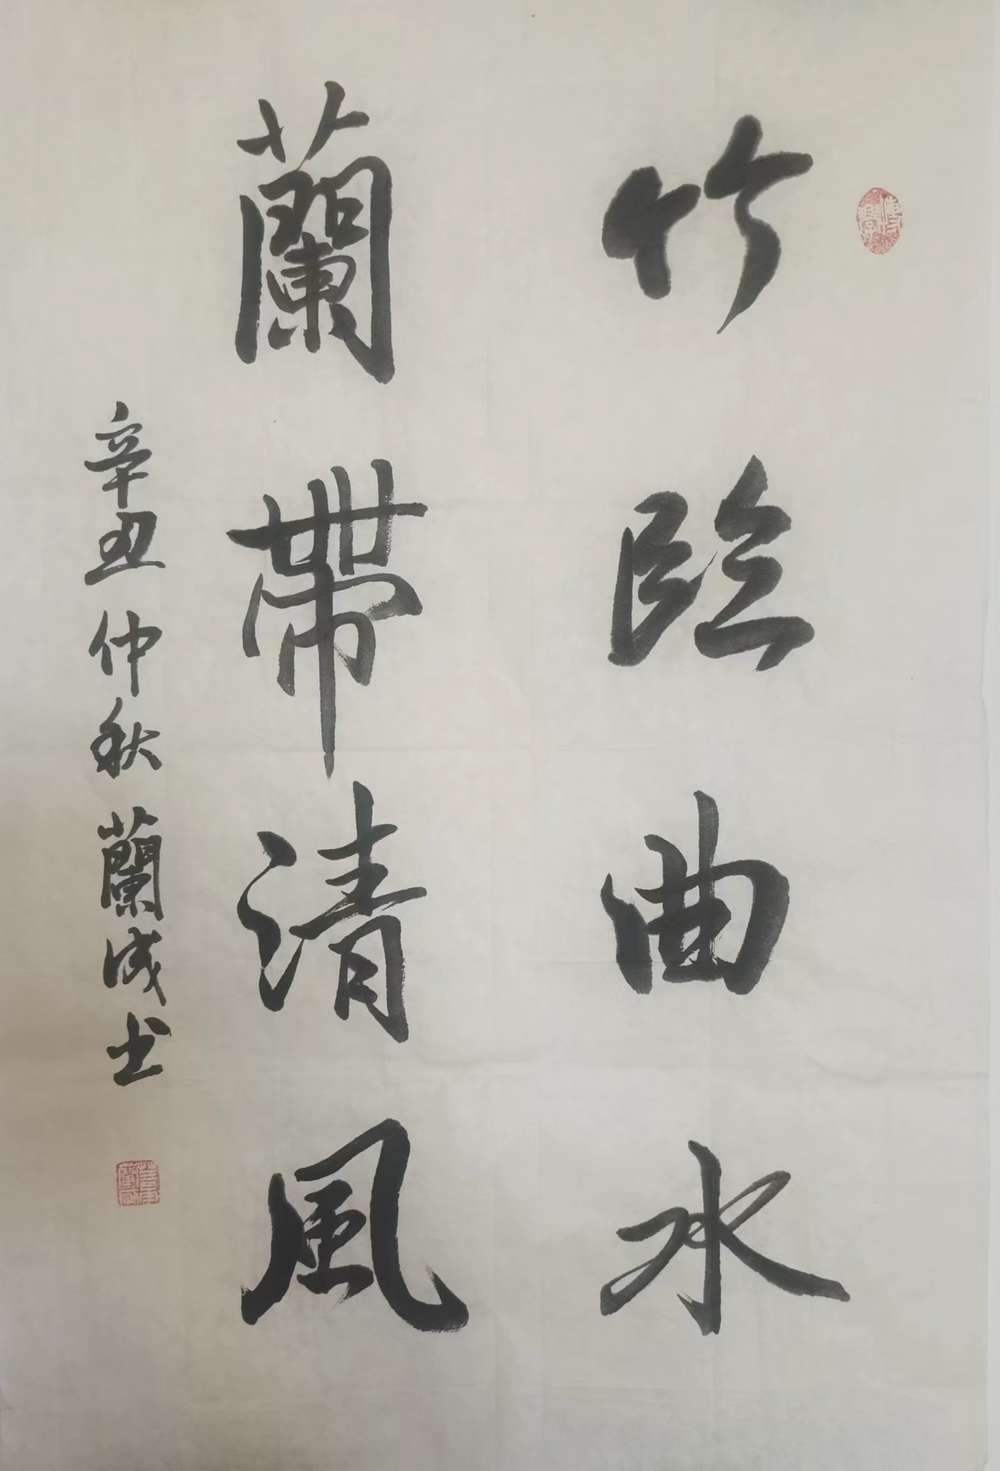 竹臨曲水
蘭帶清風
辛丑仲秋蘭成书